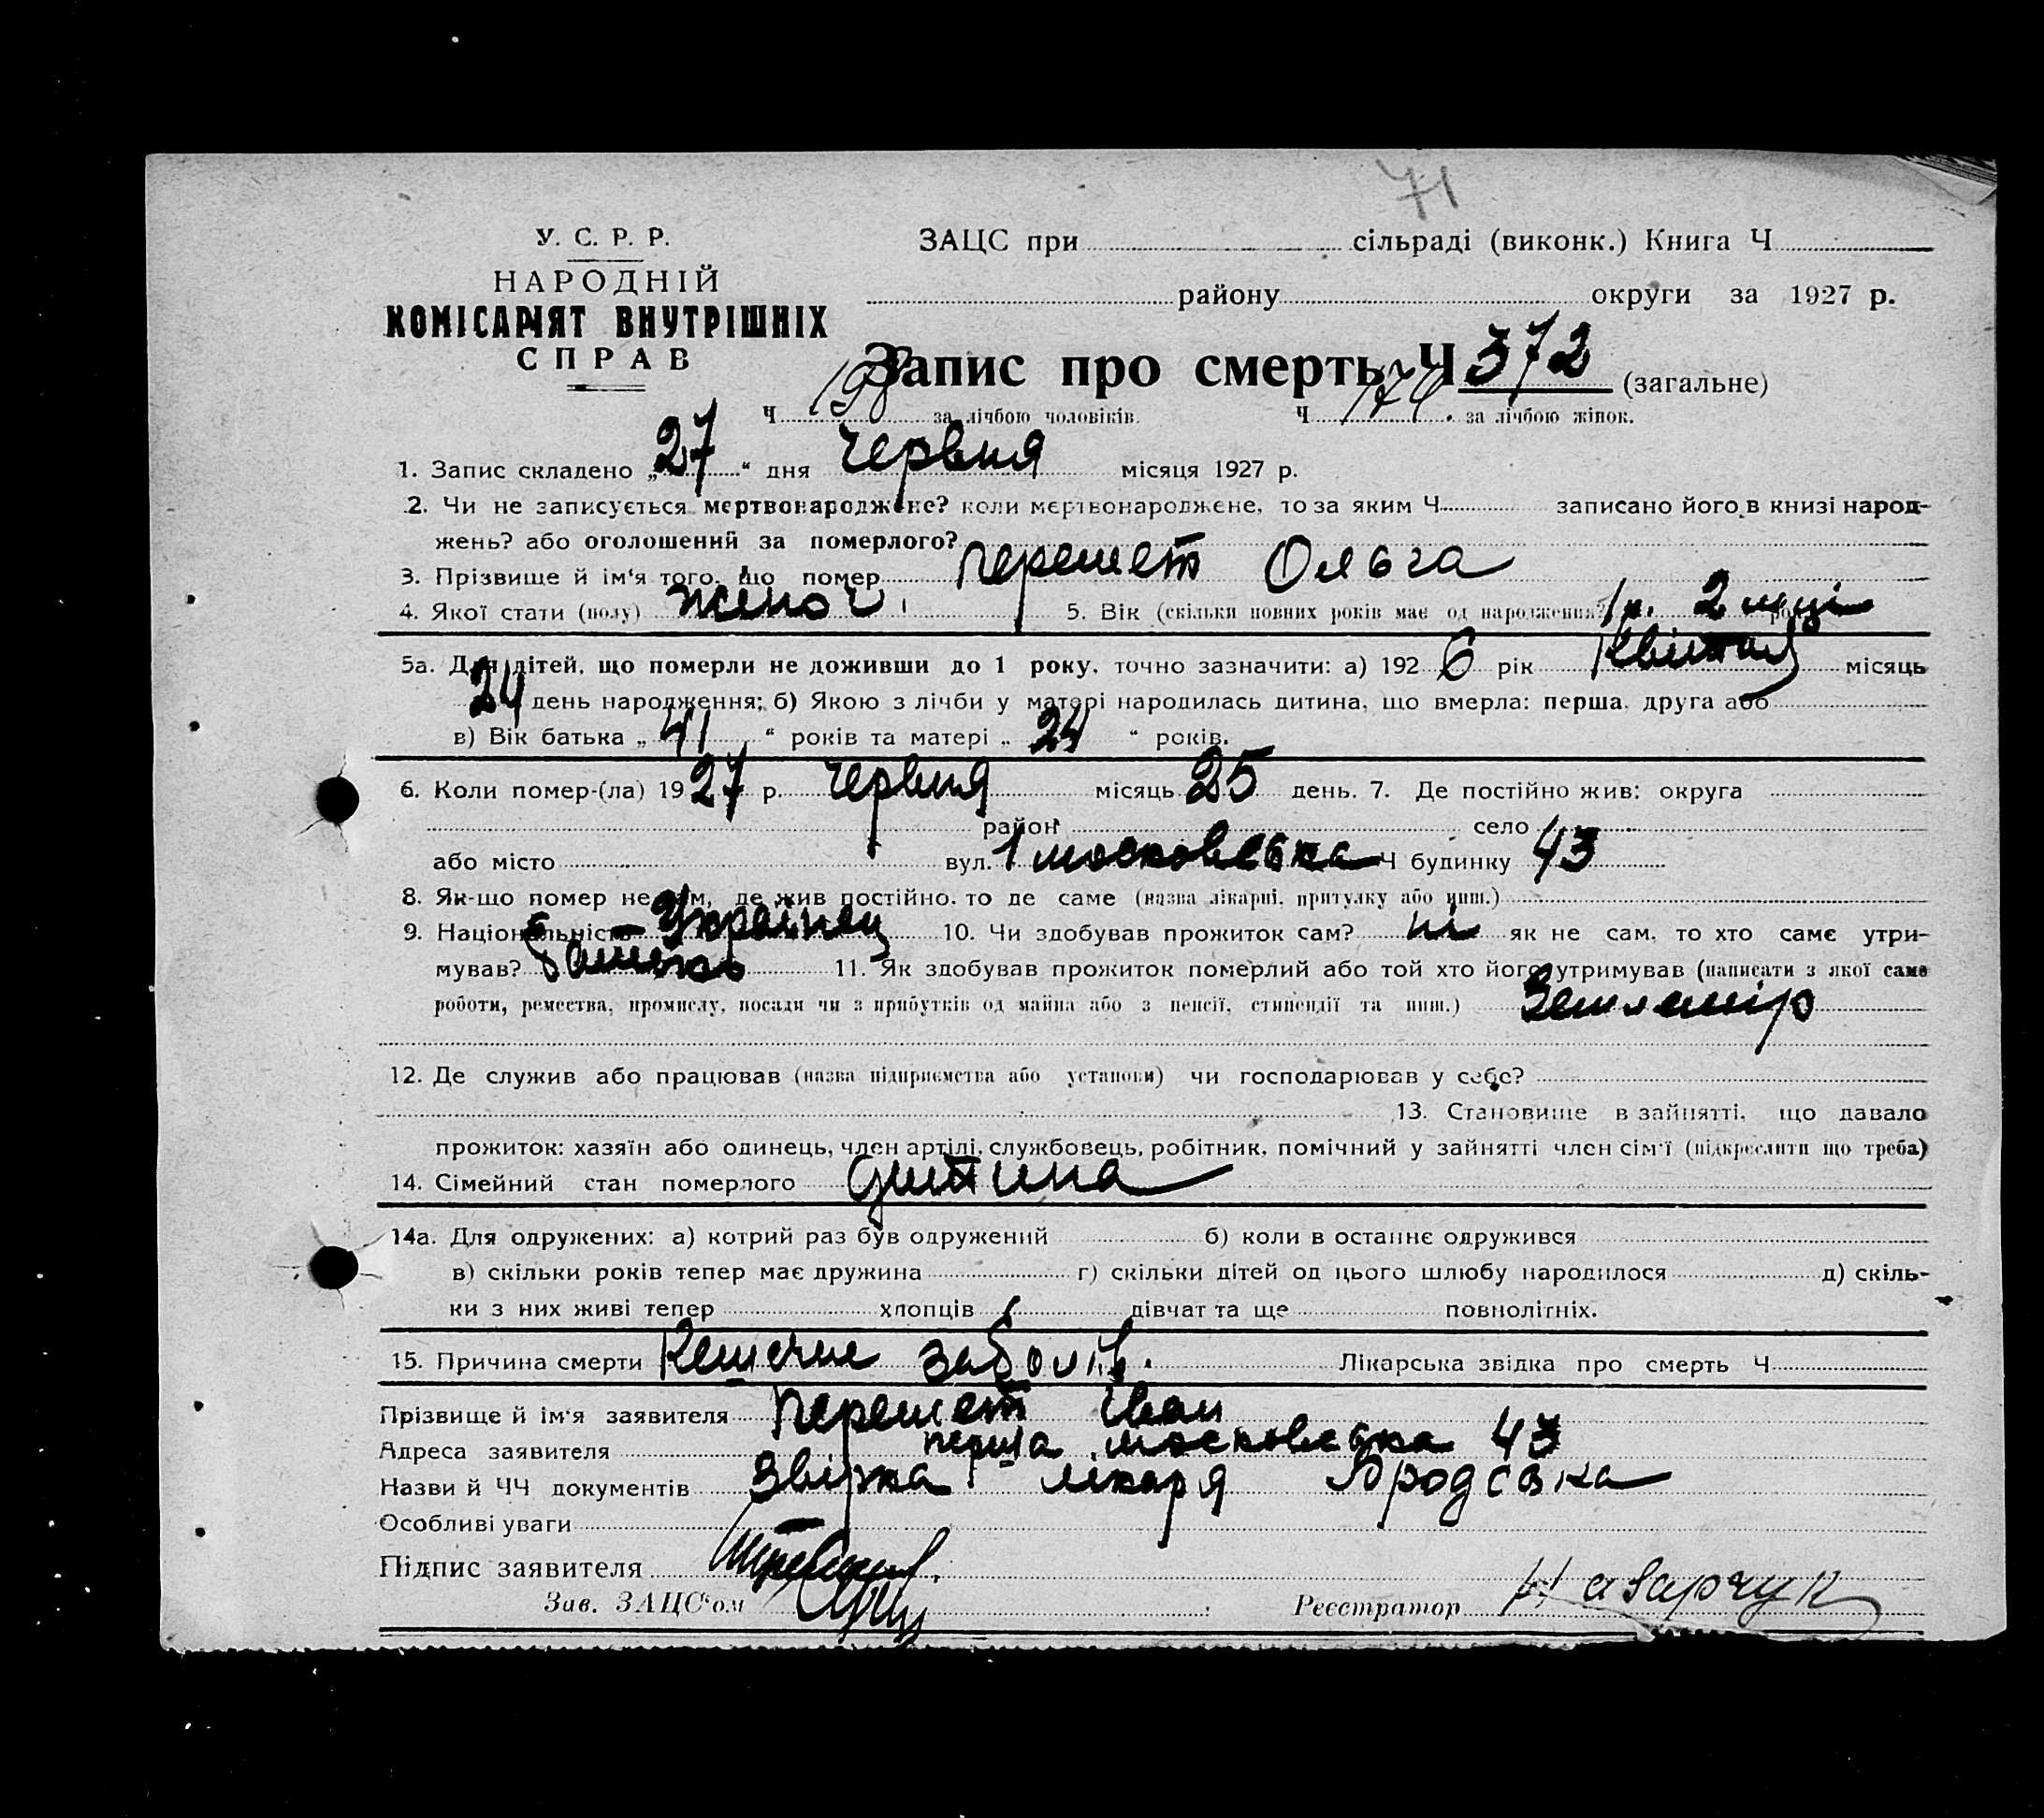 71
У. С. Р. Р.
НАРОДНІЙ
КОМІСАРІЯТ ВНУТРІШНІХ
СПРАВ
ЗАЦС при сільраді (виконк.) Книга Ч
району округи за 1927 р.
Запис про смерть Ч 372 (загальне)
Ч 198 за лічбою чоловіків. Ч 174. за лічбою жінок.
1. Запис складено „27“ дня червня місяця 1927 р.
2. Чи не записується мертвонароджене? коли мертвонароджене, то за яким Ч записано його в книзі народ-
жень? або оголошений за померлого?
3. Прізвище й ім'я того, що помер Перемет Ольга
4. Якої стати (полу) жіночі 5. Вік (скільки повних років має од народження) 1 р. 2 місці
5а. Для дітей, що померли не доживши до 1 року, точно зазначити: а) 1926 рік Квітня місяць
24 день народження; б) Якою з лічби у матері народилась дитина, що вмерла: перша, друга або
в) Вік батька „41“ років та матері „24“ років.
6. Коли помер-(ла) 1927 р. червня місяць 25 день. 7. Де постійно жив: округа
район село
або місто вул. 1 московська Ч будинку 43
8. Як-що помер не там, де жив постійно, то де саме (назва лікарні, притулку або инш.)
9. Національність Українец 10. Чи здобував прожиток сам? ні як не сам, то хто саме утри-
мував? батько 11. Як здобував прожиток померлий або той хто його утримував (написати з якої саме
роботи, ремества, промислу, посади чи з прибутків од майна або з пенсії, стипендії та инш.) Землемір
12. Де служив або працював (назва підприємства або установи) чи господарював у себе?
13. Становище в зайнятті, що давало
прожиток: хазяїн або одинець, член артілі, службовець, робітник, помічний у зайнятті член сім'ї (підкреслити що треба)
14. Сімейний стан померлого дитина
14а. Для одружених: а) котрий раз був одружений б) коли в останнє одружився
в) скільки років тепер має дружина г) скільки дітей од цього шлюбу народилося д) скіль-
ки з них живі тепер хлопців дівчат та ще повнолітніх.
15. Причина смерти Кешечне Лікарська звідка про смерть Ч
Прізвище й ім'я заявителя Перемет Іван
Адреса заявителя перша московська 43
Назви й ЧЧ документів Звідка лікаря
Особливі уваги
Підпис заявителя
Зав. ЗАЦС'ом Реєстратор Назарчук